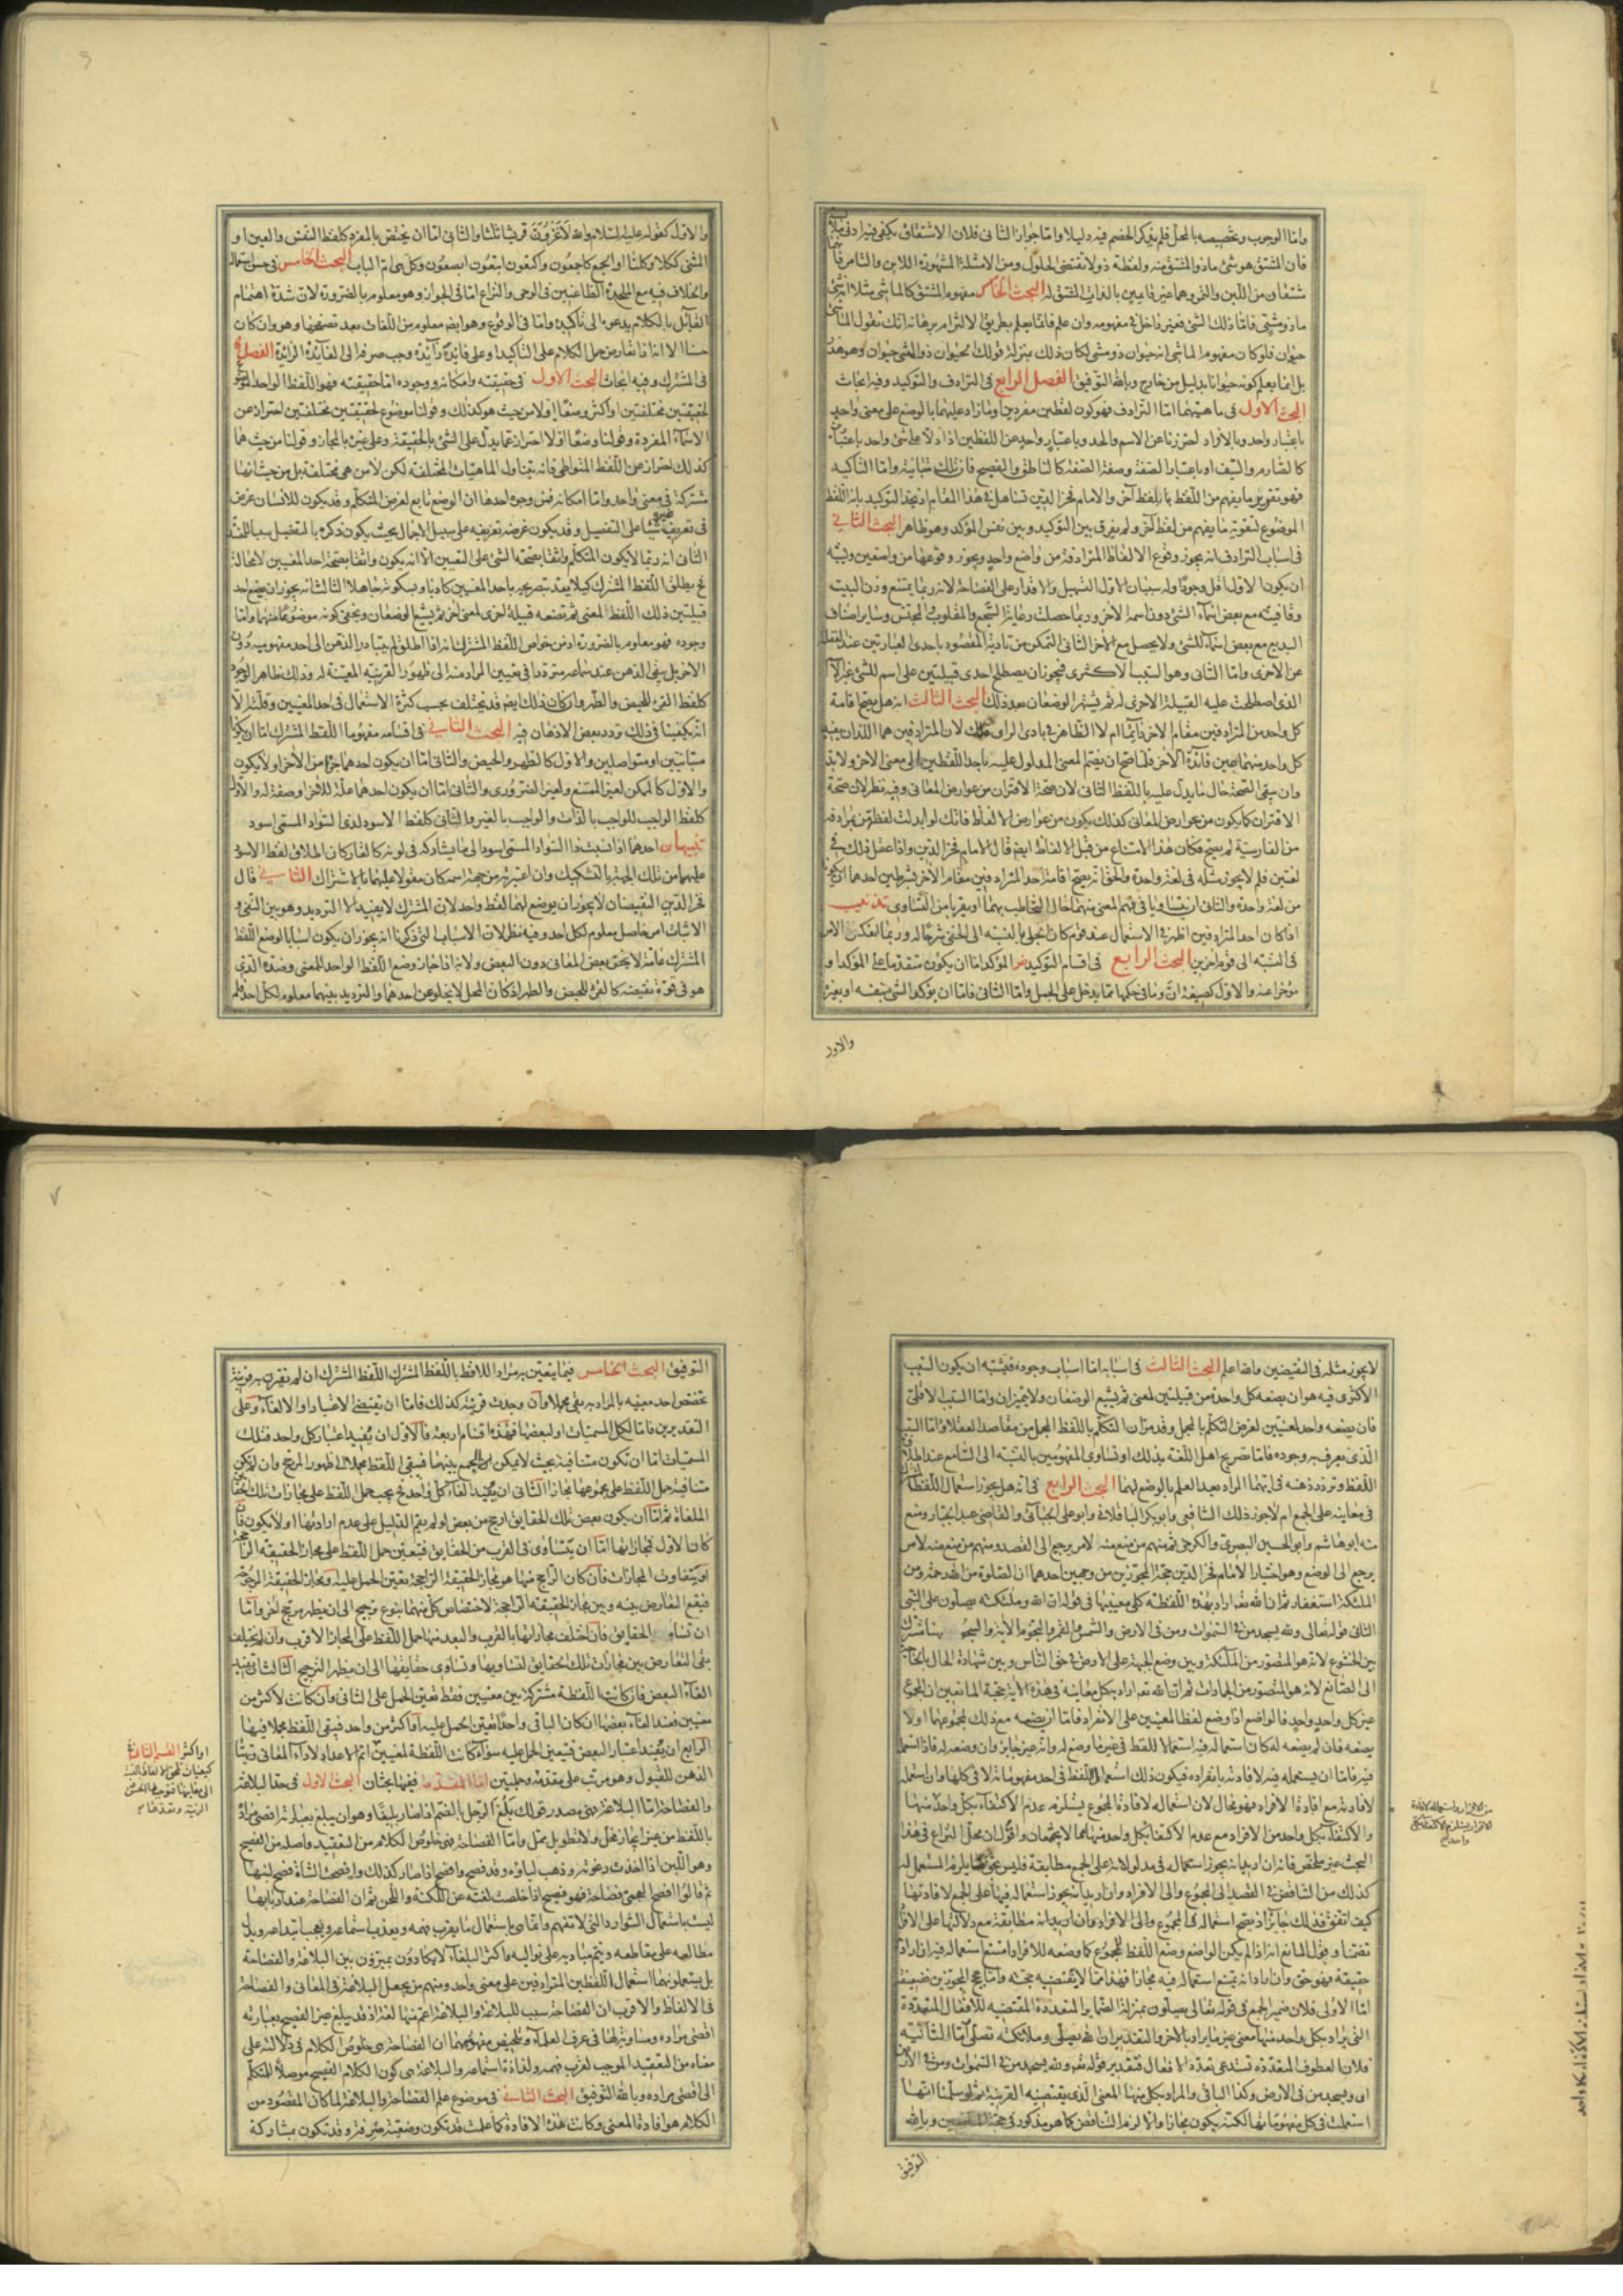 واما الوجوب وتخصيصه بالمحل فلم يذكر الخصم فيه دليلا واما جواز الثانى فلان الاشتقاق يكفى فيه ادنى ملابسة
فان المشتق هو شئ ماذو المشتق منه ولفظة ذو لا تقتضى الحلول ومن الامثلة المشهورة اللابن والتامر فانهما
مشتقان من اللبن والتمر وهما غير قايمين بالذات المشتق له البحث الخامس مفهوم المشتق كالماشى مثلا انه شئ
ماذو مشى فاما ذلك الشئ فغير داخل فى مفهومه وان علم فانما يعلم بطريق الالتزام برهانه انك تقول الماشى
حيوان فلو كان مفهوم الماشى انه حيوان ذو مشى لكان ذلك بمنزلة قولك الحيوان ذو المشى حيوان وهو هذر
بل انما يعلم كونه حيوانا بدليل من خارج وبالله التوفيق الفصل الرابع فى الترادف والتوكيد وفيه ابحاث
البحث الاول فى ماهيتهما اما الترادف فهو كون لفظين مفردين او ما زاد عليهما بالوضع على معنى واحد
باعتبار واحد وبالافراد احترزنا عن الاسم والحد وباعتبار واحد عن اللفظين اذا دلا على شئ واحد باعتبارين
كالصارم والسيف او باعتبار الصفة وصفة الصفة كالناطق والفصيح فان تلك متباينة واما التاكيد
فهو تقوية ما يفهم من اللفظ بلفظ آخر والامام فخر الدين تساهل فى هذا المقام اذ حد التوكيد بانه اللفظ
الموضوع لتقوية ما يفهم من لفظ آخر ولم يفرق بين التوكيد وبين نفس المؤكد وهو ظاهر البحث الثانى
فى اسباب الترادف انه يجوز وقوع الالفاظ المترادفة من واضع واحد ويجوز وقوعها من واضعين ويشبه
ان يكون الاول اقل وجودا وله سببان الاول التسهيل والاقدار على الفصاحة لانه ربما يمتنع وزن البيت
وقافيته مع بعض اسماء الشئ دون اسمه الاخر وربما حصلت رعاية السجع والمقلوب والمجنس وساير اصناف
البديع مع بعض اسماء الشئ ولا يحصل مع الآخر الثانى التمكن من تادية المقصود باحدى العبارتين عند الغفلة
عن الاخرى واما الثانى وهو السبب الاكثرى فيجوز ان يصطلح احدى قبيلتين على اسم للشئ غير الاسم
الذى اصطلحت عليه القبيلة الاخرى له ثم يشتهر الوضعان بعد ذلك البحث الثالث انه هل يصح اقامة
كل واحد من المترادفين مقام الاخر دايما ام لا الظاهر فى بادى الراى ذلك لان المترادفين هما اللذان يفيد
كل واحد منهما عين فائدة الآخر فلما صح ان يضم المعنى المدلول عليه باحد اللفظين الى معنى الاخر ولا بد
وان يبقى الصحة حال ما يدل عليه باللفظ الثانى لان صحة الاقتران من عوارض المعانى وفيه نظر لان صحة
الاقتران كما يكون من عوارض المعانى كذلك يكون من عوارض الالفاظ فانك لو ابدلت لفظة من بمرادفها
من الفارسية لم يصح فكان هذا الامتناع من قبل الالفاظ ايضا قال الامام فخر الدين واذا عقل ذلك فى
لغتين فلم لا يجوز مثله فى لغة واحدة والحق انه يصح اقامة احد المترادفين مقام الآخر بشرطين احدهما ان يكونا
من لغة واحدة والثانى ان يتساويا فى فهم المعنى منهما حال التخاطب بهما او يقربا من التساوى تذنيب
اذا كان احد المترادفين اظهر فى الاستعمال عند قوم كان الجلى بالنسبة الى الخفى شرحا له وربما انعكس الامر
فى النسبة الى قوم آخرين البحث الرابع فى اقسام التوكيد المؤكد اما ان يكون متقدما على المؤكد او
مؤخرا عنه والاول كصيغة ان وما فى حكمها مما يدخل على الجمل واما الثانى فاما ان يؤكد الشئ بنفسه او بغيره
والاول
والاول كقوله عليه السلام والله لاغزون قريشا ثلثا والثانى اما ان يختص بالمفرد كلفظ النفس والعين او
المثنى ككلا وكلتا او الجمع كاجمعون واكتعون ابتعون ابصعون وكل وهى ام الباب البحث الخامس فى حسن استعماله
والخلاف فيه مع الملحدة الطاعنين فى الوحى والنزاع اما فى الجواز وهو معلوم بالضرورة لان شدة اهتمام
القايل بالكلام يدعوه الى تاكيده واما فى الوقوع وهو ايضا معلوم من اللغات بعد تصفحها وهو وان كان
حسنا الا انه اذا تعارض حمل الكلام على التاكيد او على فائدة زائدة وجب صرفه الى الفائدة الزائدة الفصل
فى المشترك وفيه ابحاث البحث الاول فى حقيقته وامكانه ووجوده اما حقيقته فهو اللفظ الواحد الموضوع
لحقيقتين مختلفتين او اكثر وضعا اولا من حيث هو كذلك وقولنا موضوع لحقيقتين مختلفتين احتراز عن
الاسماء المفردة وقولنا وضعا اولا احتراز عما يدل على الشئ بالحقيقة وعلى غيره بالمجاز وقولنا من حيث هما
كذلك احتراز عن اللفظ المتواطى فانه يتناول الماهيات المختلفة لكن لا من هى مختلفة بل من حيث انها
مشتركة فى معنى واحد واما امكانه فمن وجوه احدها ان الوضع تابع لغرض المتكلم وقد يكون للانسان غرض
فى تعريف غيره شيئا على التفصيل وقد يكون غرضه تعريفه على سبيل الاجمال بحيث يكون ذكره بالتفصيل سببا للمفسدة
الثانى انه ربما لا يكون المتكلم واثقا بصحة الشئ على التعيين الا انه يكون واثقا بصحة احد المعنيين لا محالة
فح يطلق اللفظ المشترك كيلا يعد بتصريحه باحد المعنيين كاذبا وبسكوته جاهلا الثالث انه يجوز ان يضع احد
قبيلتين ذلك اللفظ لمعنى ثم تضعه قبيلة اخرى لمعنى آخر ثم يشيع الوضعان ويخفى كونه موضوعا منهما واما
وجوده فهو معلوم بالضرورة اذ من خواص اللفظ المشترك انه اذا اطلق لم يتبادر الذهن الى احد مفهوميه دون
الآخر بل يبقى الذهن عند سماعه مترددا فى تعيين المراد منه الى ظهور القرينة المعينة له وذلك ظاهر الوجود
كلفظ القرء للحيض والطهر وان كان ذلك ايضا قد يختلف بحسب كثرة الاستعمال فى احد المعنيين وقلته الا
انه يكفينا فى ذلك تردد بعض الاذهان فيه البحث الثانى فى اقسامه مفهوما اللفظ المشترك اما ان يكونا
متباينين او متواصلين والاول كالطهر والحيض والثانى اما ان يكون احدهما جزءا من الآخر او لا يكون
والاول كالممكن لغير الممتنع ولغير الضرورى والثانى اما ان يكون احدهما علة للآخر او صفة له والاول
كلفظ الواجب للواجب بالذات والواجب بالغير والثانى كلفظ الاسود لذى السواد المسمى اسود
تنبيهان احدهما اذا نسبت ذا السواد المسمى اسود الى ما يشاركه فى لونه كالقار كان اطلاق لفظ الاسود
عليهما من تلك الجهة بالتشكيك وان اعتبرته من جهة اسمه كان مقولا عليهما بالاشتراك الثانى قال
فخر الدين النقيضان لا يجوز ان يوضع لهما لفظ واحد لان المشترك لا يفيد الا الترديد وهو بين النفى و
الاثبات امر حاصل معلوم لكل احد وفيه نظر لان الاسباب التى ذكرناها انه يجوز ان يكون اسبابا لوضع اللفظ
المشترك عامة لا يحق بعض المعانى دون البعض ولانه اذا جاز وضع اللفظ الواحد للمعنى وضده الذى
هو فى قوة نقيضه كالقرء للحيض والطهر اذ كان المحل لا يخلو عن احدهما والترديد بينهما معلوم لكل احد فلم
لا يجوز مثله فى النقيضين والله اعلم البحث الثالث فى اسبابه اما اسباب وجوده فيشبه ان يكون السبب
الاكثرى فيه هو ان يضعه كل واحدة من قبيلتين لمعنى ثم يشيع الوضعان ولا يتميزان واما السبب الاقلى
فان يضعه واحد لمعنيين لغرض التكلم بالمجمل وقد مر ان التكلم باللفظ المجمل من مقاصد العقلاء واما السبب
الذى يعرف به وجوده فاما تصريح اهل اللغة بذلك او تساوى المفهومين بالنسبة الى السامع عند اطلاق
اللفظ وتردد ذهنه فى ايهما المراد بعد العلم بالوضع لهما البحث الرابع فى انه هل يجوز استعمال اللفظ المشترك
فى معانيه على الجمع ام لا جوز ذلك الشافعى وابو بكر الباقلانى وابو على الجبائى والقاضى عبد الجبار ومنع
منه ابو هاشم وابو الحسين البصرى والكرخى ثم منهم من منع منه لامر يرجع الى القصد ومنهم من منع منه لامر
يرجع الى الوضع وهو اختيار الامام فخر الدين حجة المجوزين من وجهين احدهما ان الصلوة من الله رحمة ومن
الملئكة استغفار ثم ان الله تعالى اراد بهذه اللفظة كلى معنييها فى قوله ان الله وملئكته يصلون على النبى
الثانى قوله تعالى ولله يسجد من فى السموات ومن فى الارض والشمس والقمر والنجوم الاية والسجود هنا مشترك
بين الخشوع لانه هو المتصور من الملئكة وبين وضع الجبهة على الارض فى حق الناس وبين شهادة الحال بالحاجة
الى الصانع لانه هو المتصور من الجمادات ثم ان الله تعالى اراد بكل معانيه فى هذه الاية حجة المانعين ان المجموع
غير كل واحد واحد فالواضع اذا وضع لفظا لمعنيين على الانفراد فاما ان يضعه مع ذلك لمجموعهما او لا
يضعه فان لم يضعه له كان استعماله فيه استعمالا للفظ فى غير ما وضع له وانه غير جايز وان وضعه له فاذا استعمله
فيه فاما ان يستعمله فيه لافادته بانفراده فيكون ذلك استعمال اللفظ فى احد مفهوماته لا فى كلها وان استعمله
لافادته مع افادة الافراد فهو محال لان استعماله لافادة المجموع يستلزم عدم الاكتفاء بكل واحد منهما
والاكتفاء بكل واحد من الافراد مع عدم الاكتفاء بكل واحد منهما مما لا يجتمعان واقول ان محل النزاع فى هذا
البحث غير ملخص فانه ان اريد انه يجوز استعماله فى مدلولاته على الجمع مطابقة فليس بحق لما يلزم المستعمل له
كذلك من التناقض فى القصد الى المجموع والى الافراد وان اريد انه يجوز استعماله فيها على الجمع لافادتها
كيف اتفق فذلك جائز اذ يصح استعماله فى المجموع والى الافراد وان اريد انه مطابقة مع دلالتها على الافراد
تضمنا وقول المانع انه اذا لم يكن الواضع وضع اللفظ للمجموع كما وضعه للافراد امتنع استعماله فيه ان اراد
حقيقة فهو حق وان اراد انه يمتنع استعماله فيه مجازا فهذا مما لا يقتضيه حجته واما حجج المجوزين ضعيفة
اما الاولى فلان ضمير الجمع فى قوله تعالى يصلون بمنزلة الضماير المتعددة المقتضيه للافعال المتعددة
التى يراد بكل واحد منها معنى غير ما يراد بالآخر والتقدير ان الله يصلى وملائكته تصلى اما الثانية
فلان العطوف المتعددة تستدعى تعدد الافعال فتقدير قوله تعالى ولله يسجد من فى السموات ومن فى الارض
اى ويسجد من فى الارض وكذا الباقى والمراد بكل منها المعنى الذى يقتضيه القرينة ثم لو سلمنا انها
استعملت فى كل مفهوماتها لكنه يكون مجازا والا لزم التناقض كما هو مذكور فى حجة المانعين وبالله
التوفيق
التوفيق البحث الخامس فيما يتعين به مراد اللافظ باللفظ المشترك اللفظ المشترك ان لم تقترن به قرينة
تخصص احد معنييه بالمراد به بقى مجملا وان وجدت قرينة كذلك فاما ان تقتضى الاعتبار او الالغاء وعلى
التقديرين فاما لكل المسميات او لبعضها فهذه اقسام اربعة فالاول ان يفيد اعتبار كل واحد فتلك
المسميات اما ان تكون متنافية بحيث لا يمكن الجمع بينها فيبقى اللفظ مجملا الى ظهور المرجح وان لم تكن
متنافية حمل اللفظ على مجموعها مجازا الثانى ان يفيد الغاء كل واحد فح يجب حمل اللفظ على مجازات تلك الحقايق
الملغاة ثم اما ان يكون بعض تلك الحقايق ارجح من بعض لو لم يقم الدليل على عدم ارادتها او لا يكون فان
كان الاول فمجازاتها اما ان يتساوى فى القرب من الحقايق فيتعين حمل اللفظ على مجاز الحقيقة الراجحة
او يتفاوت المجازات فان كان الراجح منها هو مجاز الحقيقة الراجحة تعين الحمل عليه او مجاز الحقيقة المرجوحة
فيقع التعارض بينه وبين مجاز الحقيقة الراجحة لاختصاص كل منهما بنوع ترجيح الى ان يظهر مرجح آخر واما
ان تساوى الحقايق فان اختلف مجازاتها بالقرب والبعد منها حمل اللفظ على المجاز الاقرب وان لم يختلف
بقى التعارض بين مجازات تلك الحقايق لتساويها وتساوى حقايقها الى ان يظهر الترجيح الثالث ان يفيد
الغاء البعض فان كانت اللفظة مشتركة بين معنيين فقط تعين الحمل على الثانى وان كانت لاكثر من
معنيين فعند الغاء بعضها ان كان الباقى واحدا تعين الحمل عليه او اكثر من واحد فيبقى اللفظ مجملا فيها
الرابع ان يفيد اعتبار البعض فيتعين الحمل عليه سواء كانت اللفظة لمعنيين
الذهن للقبول وهو مرتب على مقدمة وجملتين اما المقدمة ففيها بحثان البحث الاول فى حد البلاغة
والفصاحة اما البلاغة فهى مصدر قولك بلغ الرجل بالضم اذا صار بليغا وهو ان يبلغ بعبارته اقصى مراده
باللفظ من غير ايجاز مخل ولا تطويل ممل واما الفصاحة فهى خلوص الكلام من التعقيد واصله من الفصيح
وهو اللبن اذا اخذت رغوته وذهب لباؤه وقد فصح وافصح اذا صار كذلك وافصحت الشاة فصح لبنها
ثم قالوا افصح العجمى فصاحة فهو فصيح اذا خلصت لغته عن اللكنة واللحن ثم ان الفصاحة عند اربابها
ليست باستعمال الشوارد التى لا تفهم وانما هى باستعمال ما يقرب فهمه ويعذب استماعه ويعجب ابتداعه ويدل
مطالعه على مقاطعه ويتم مباديه على تواليه واكثر البلغاء لا يكادون يميزون بين البلاغة والفصاحة
بل يستعملونهما استعمال اللفظين المترادفين على معنى واحد ومنهم من يجعل البلاغة فى المعانى والفصاحة
فى الالفاظ والاقرب ان الفصاحة سبب للبلاغة والبلاغة اعم منها لغة اذ قد يبلغ غير الفصيح بعبارته
اقصى مراده ومساوية لها فى عرف العلماء وتلخيص مفهومهما ان الفصاحة هى خلوص الكلام فى دلالته على
معناه من التعقيد الموجب لقرب فهمه ولذاذة استماعه والبلاغة هى كون الكلام الفصيح موصلا للمتكلم
الى اقصى مراده وبالله التوفيق البحث الثانى فى موضوع علم الفصاحة والبلاغة لما كان المقصود من
الكلام هو افادة المعنى وكانت هذه الافادة كما علمت قد تكون وضعية صرفة وقد تكون بمشاركة